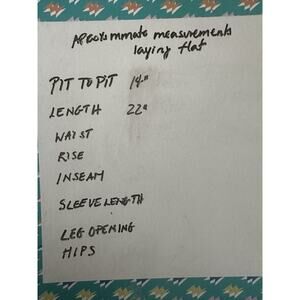 Approximmate measurements
laying flat
PIT TO PIT 19"
LENGTH 22"
WAIST
RISE
INSEAM
SLEEVE LENGTH
LEG OPENING
HIPS